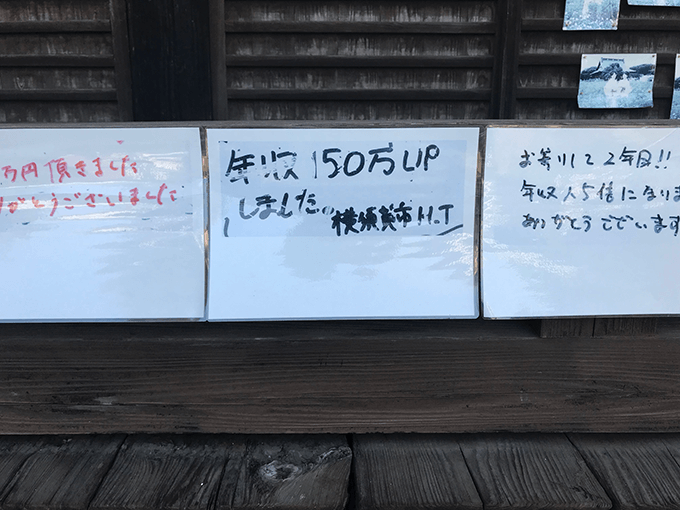 万円頂きました
りがとうございました
年収150万UP
しました。横須賀市H.T
お寄りして2年目!!
年収1.5倍になりま
ありがとうございます